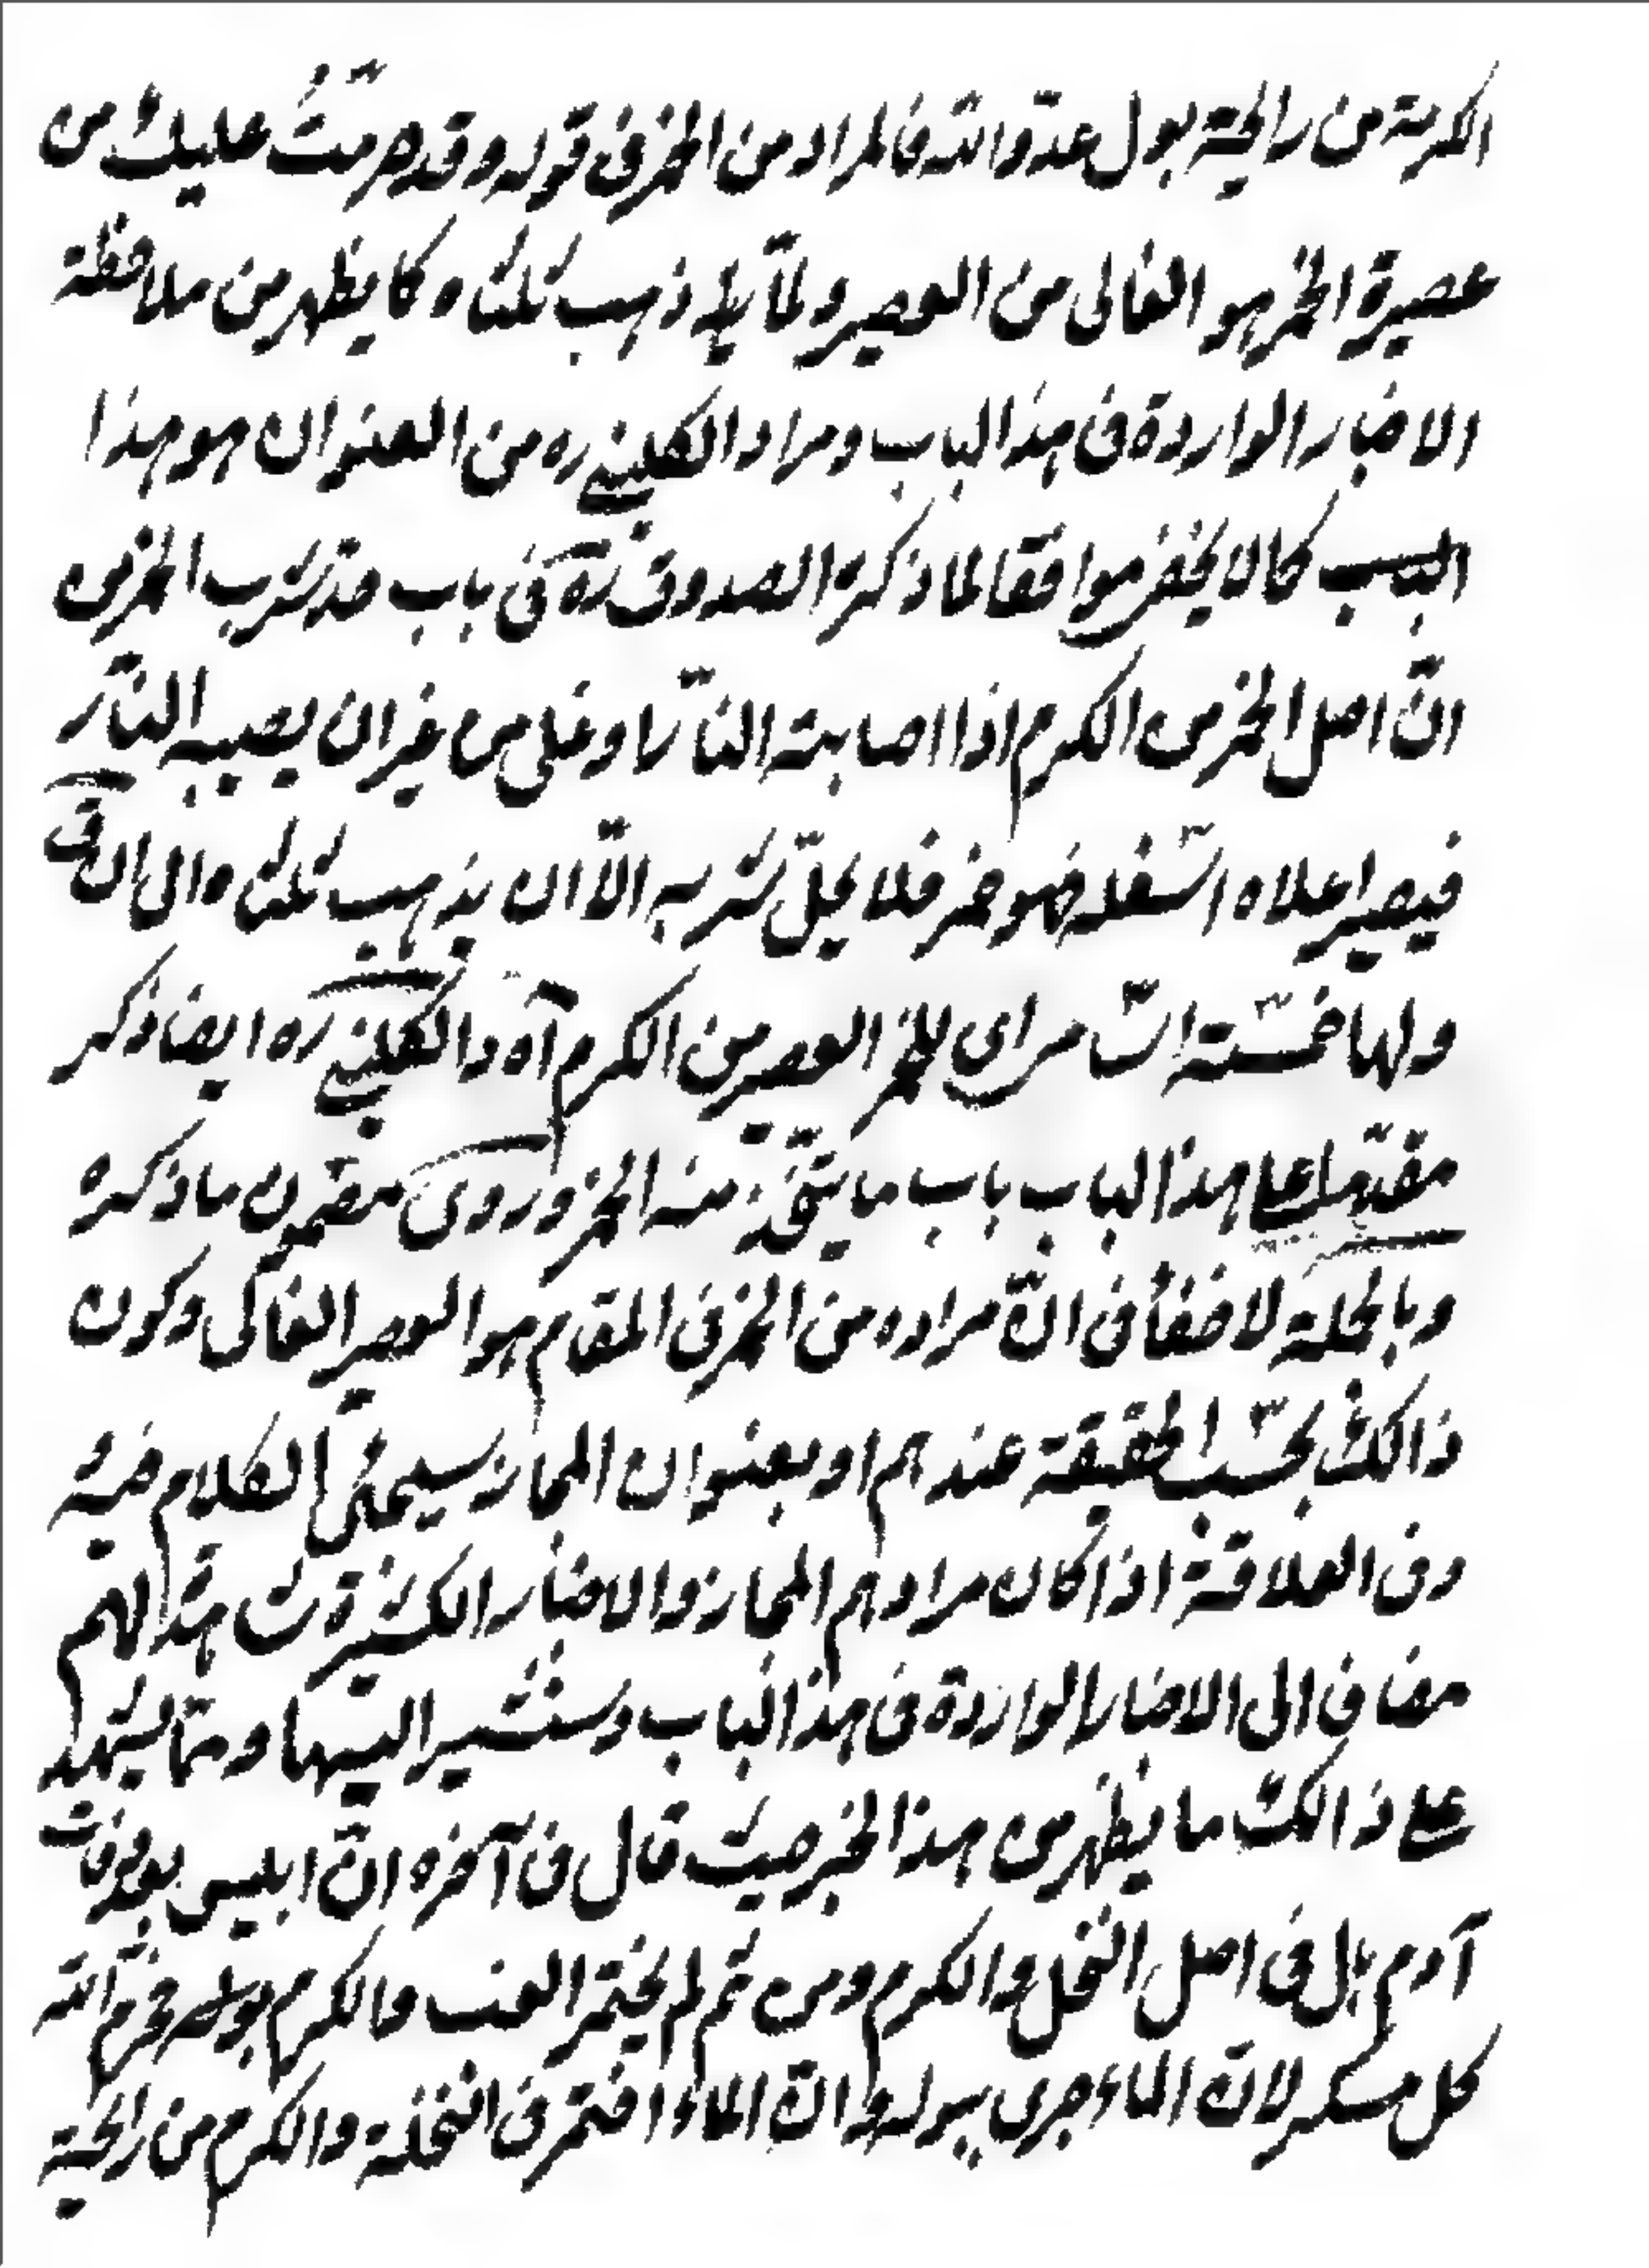 الكرمة من رائحة بول عدوّ الله فالمراد من الخمر فى قوله وقد حرمتُ عليك من
عصيرة الخمر هو الغالى من العصير ولمّا يذهب ثلثاه كما يظهر من ملاحظة
الاخبار الواردة فى هذا الباب ومراد الكلينى ره من العنوان هو هذا
البب كما لا يخفى موافقا لما ذكره الصدوق ره فى باب حدّ شرب الخمر من
انّ اصل الخمر من الكرم اذا اصابته النّار او غلى من غير ان يصيبه النّار
فيصير اعلاه اسفله فهو خمر فلا يحلّ شربه الّا ان يذهب ثلثاه الى ان ق
ولها خمسة اسامى للخمر العصير من الكرم آه والكلينى ره ايضا ذكر
مقدّما على هذا الباب باب ما يتّخذ منه الخمر وروى مضمون ما ذكره
وبالجملة لا خفأ فى انّ مراده من الخمر فى المقام هو العصير الغالى وكون
ذالك بحسب الحقيقة عندهم او بعنوان المجاز سيجئ الكلام فيه
وفى العلاقة اذا كان مرادهم المجاز والاخبار الكثيرة شاهدة لهم
مضافا الى الاخبار الواردة فى هذا الباب وسنشير اليها وممّا يشهد
على ذالك ما يظهر من هذا الخبر حيث قال فى آخره انّ ابليس بعد وفات
آدم بال فى اصل النخل والكرم ومن ثمّ لم يختمر العنب والكرم بوله فحرّم الله
كل مسكر لانّ الماء جرى ببوله وانّ الماء اختمر فى النخلة والكرم من رائحة